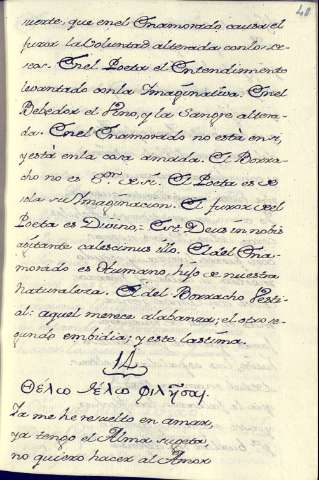 40
suerte, que en el Enamorado causa el
furor la Voluntad alterada con los de-
seos. En el Poeta el Entendimiento
levantado con la Imaginativa. En el
Bebedor el Vino, y la Sangre altera-
da. En el Enamorado no està en si,
y està en la cosa amada. El Borra-
cho no es Sr. de si. El Poeta es de
sola su Imaginacion. El furor del
Poeta es Divino: Est Deus in nobis
agitante calescimus illo. El del Ena-
morado es Humano, hijo de nuestra
Naturaleza. El del Borracho Besti-
al: aquel merece alabanza; el otro se-
gundo embidia; y este lastima.
14
Θέλω θέλω φιλῆσαι
Ya me he resuelto en amar,
ya tengo el Alma sugeta,
no quiero hacer al Amor